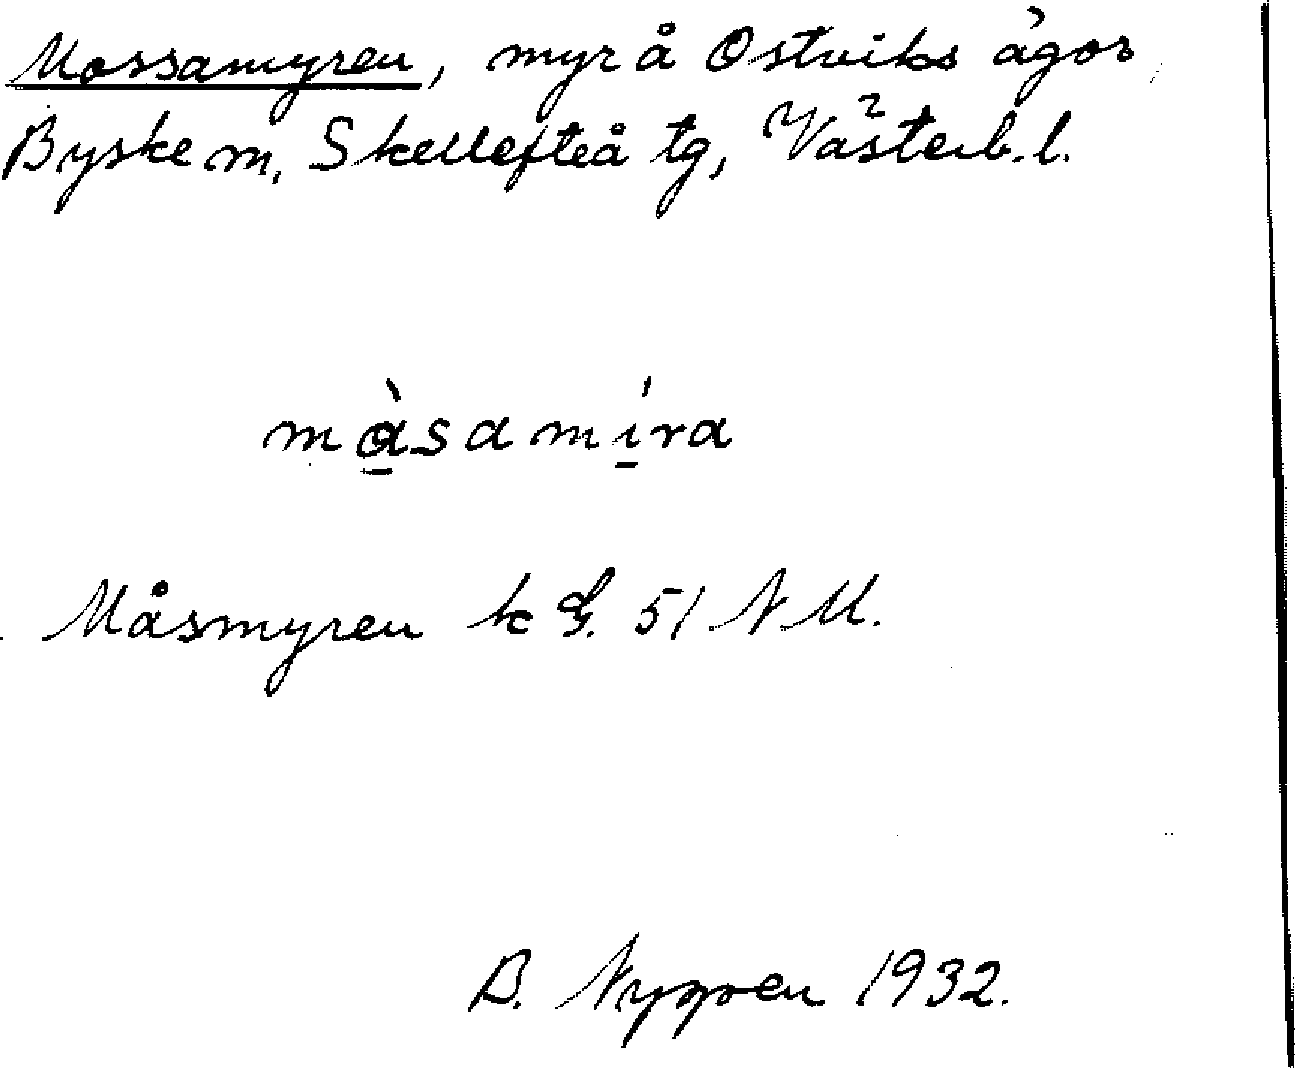 Mossamyren, myr å Ostviks ägor
Byske sn, Skellefteå tg, Västerb. l.
màsamíra
Måsmyren k G. 51 N M.
B. Nygren 1932.